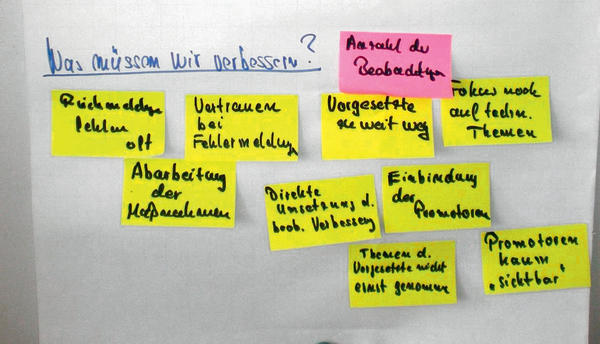 Was müssen wir verbessern?
Anzahl der
Beobachtungen
Rückmeldungen
fehlen
oft
Vertrauen
bei
Fehlermeldung
Vorgesetzte
zu weit weg
Fokus noch
auf techn.
Themen
Abarbeitung
der
Maßnahmen
Direkte
Umsetzung d.
beob. Verbesserg
Einbindung
der
Promotoren
Themen d.
Vorgesetzte nicht
ernst genommen
Promotoren
kaum
"sichtbar"